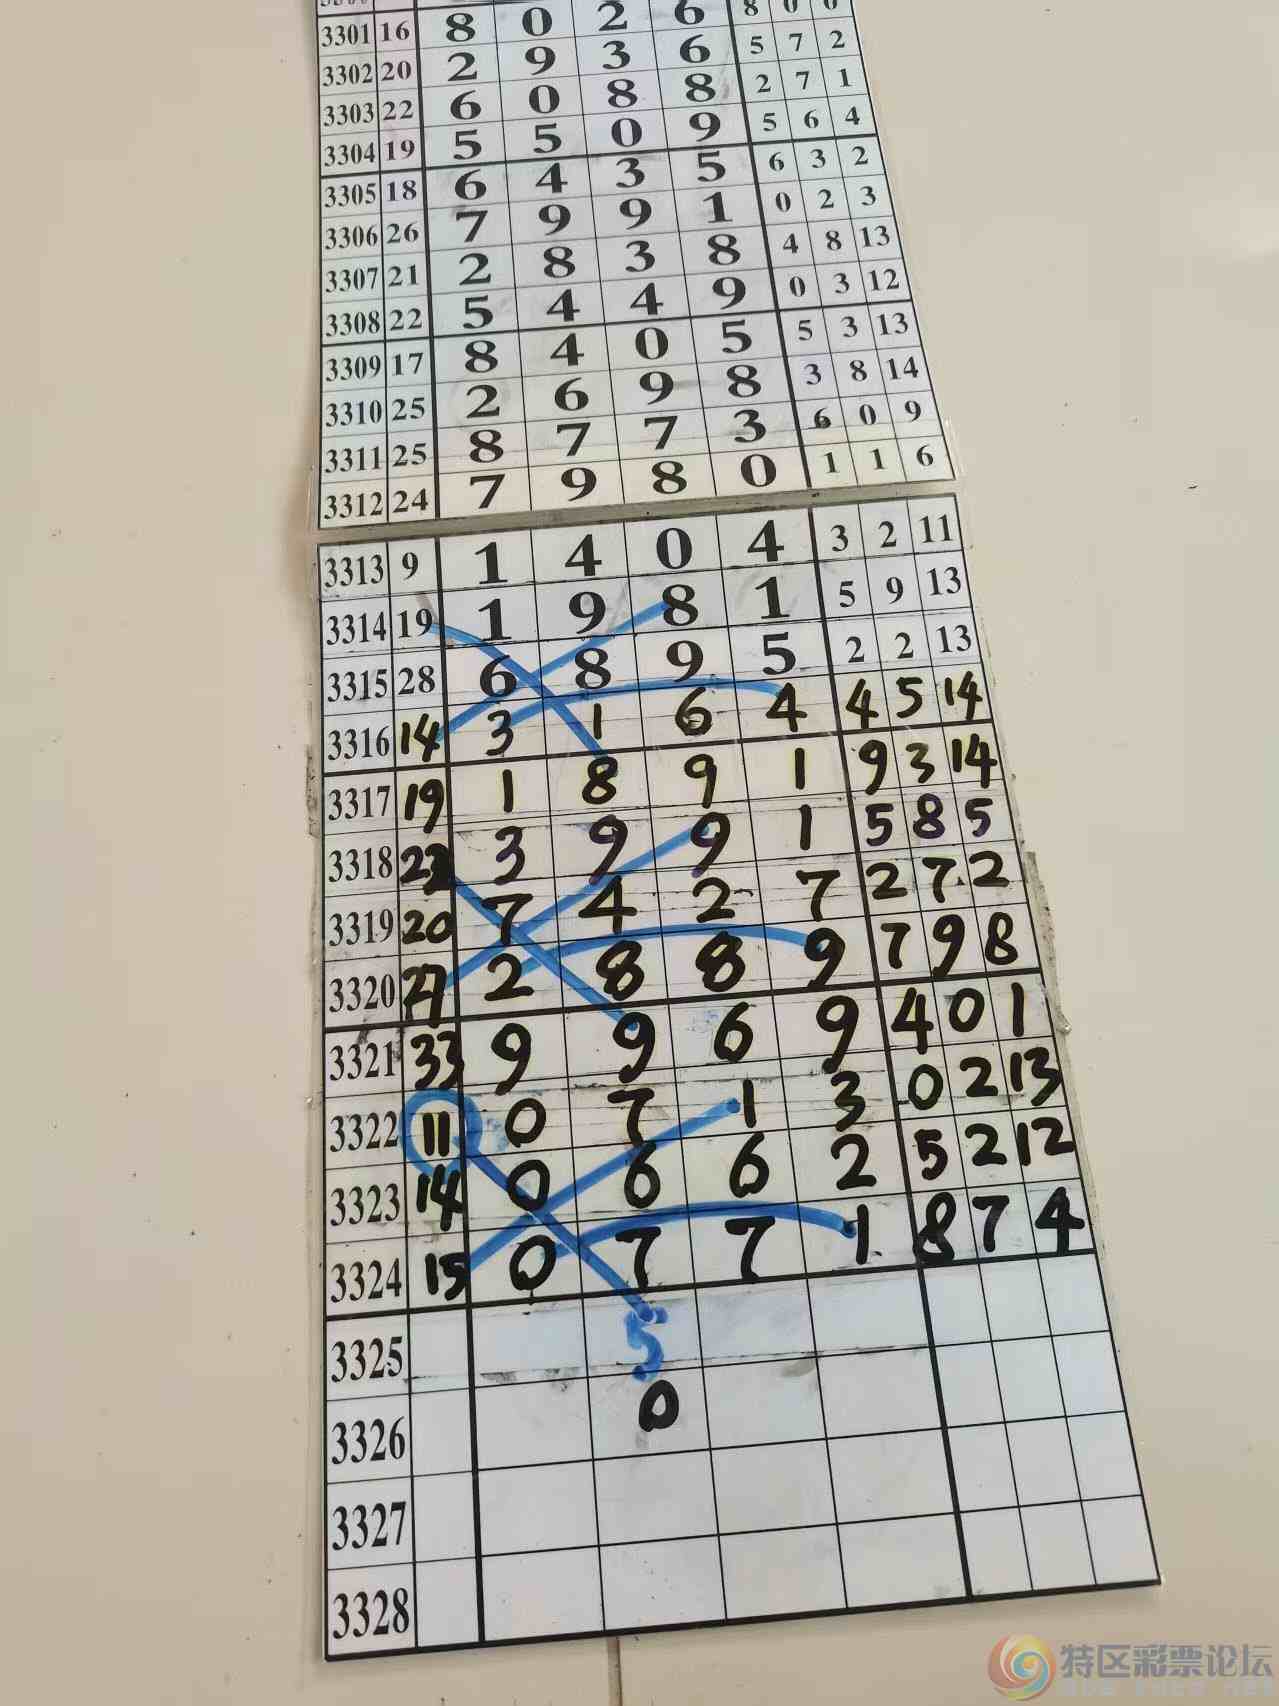 3301 16 8 0 2 6 8 0 0
3302 20 2 9 3 6 5 7 2
3303 22 6 0 8 8 2 7 1
3304 19 5 5 0 9 5 6 4
3305 18 6 4 3 5 6 3 2
3306 26 7 9 9 1 0 2 3
3307 21 2 8 3 8 4 8 13
3308 22 5 4 4 9 0 3 12
3309 17 8 4 0 5 5 3 13
3310 25 2 6 9 8 3 8 14
3311 25 8 7 7 3 6 0 9
3312 24 7 9 8 0 1 1 6
3313 9 1 4 0 4 3 2 11
3314 19 1 9 8 1 5 9 13
3315 28 6 8 9 5 2 2 13
3316 14 3 1 6 4 4 5 14
3317 19 1 8 9 1 9 3 14
3318 3 9 9 1 5 8 5
3319 20 7 4 2 7 2 7 2
3320 27 2 8 8 9 7 9 8
3321 33 9 9 6 9 4 0 1
3322 11 0 7 1 3 0 2 13
3323 14 0 6 6 2 5 2 12
3324 15 0 7 7 1 8 7 4
3325 5
3326 0
3327
3328
特区彩票论坛